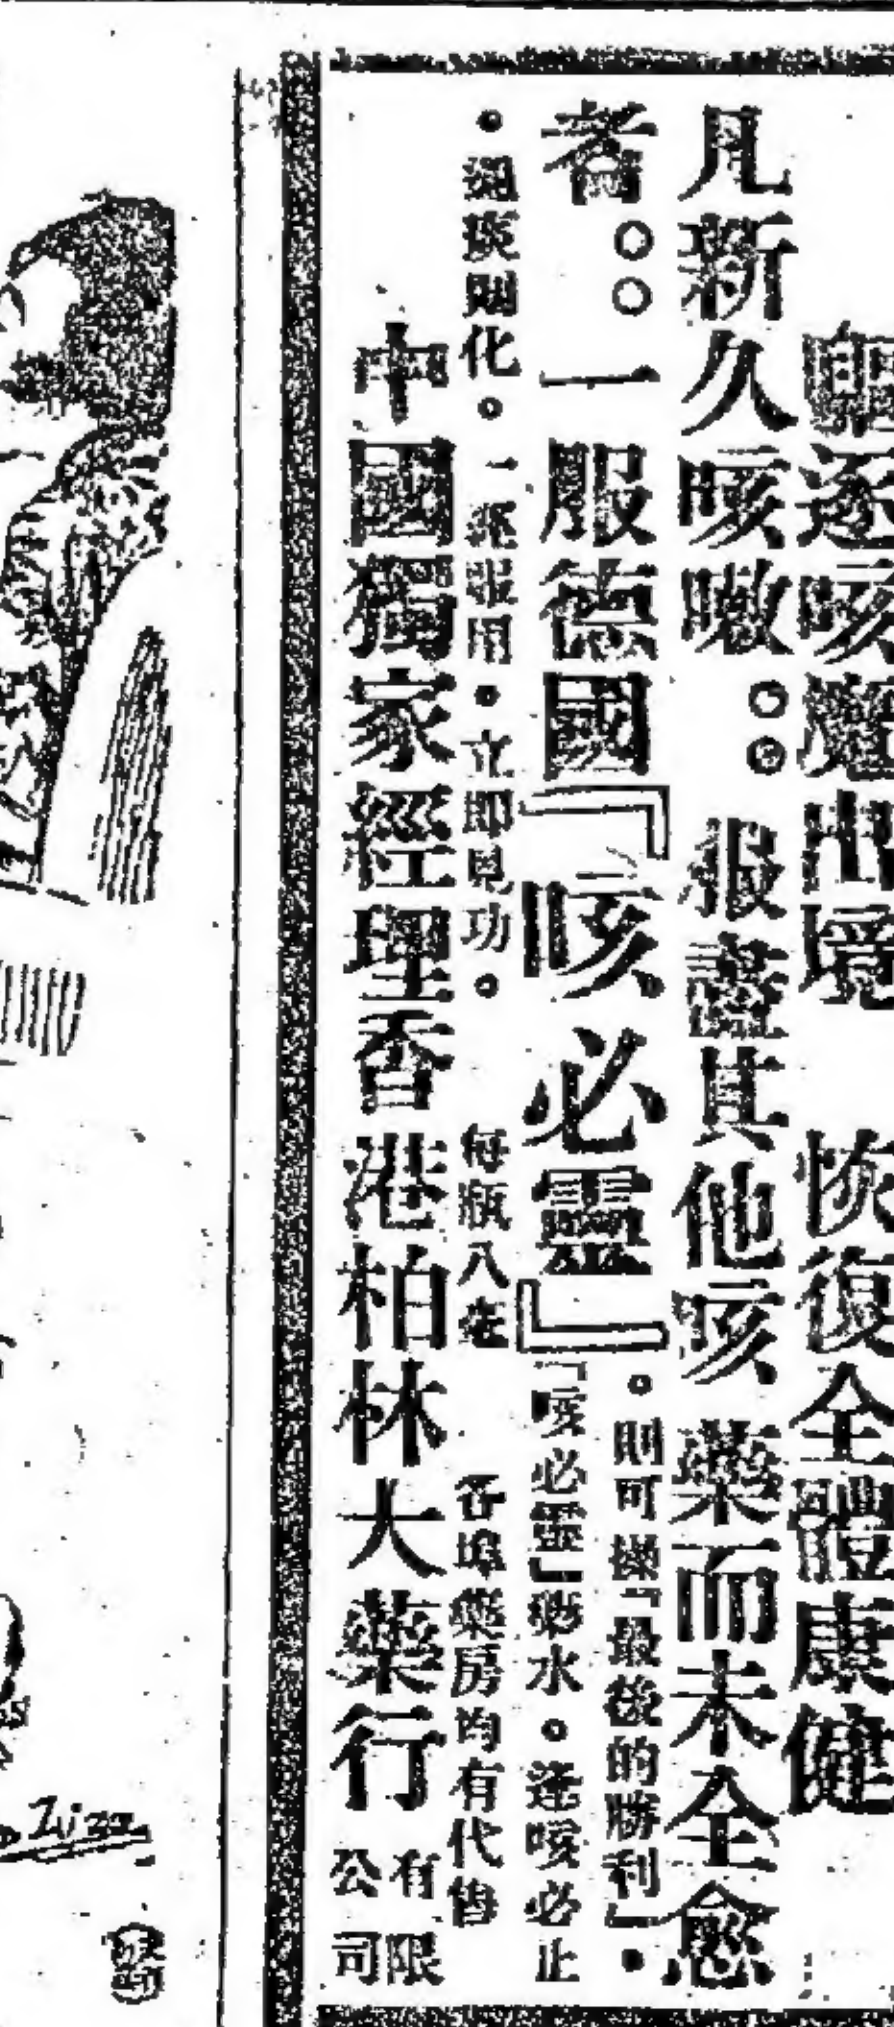 驅逐咳魔出境　恢復全體康健
凡新久咳嗽。。服盡其他咳藥而未全愈
者。。一服德國『咳必靈』。則可操「最後的勝利」。
「咳必靈」藥水。逢咳必止
。遇痰則化。一經服用。立即見功。　每瓶八毫　各埠藥房均有代售
中國獨家經理香港柏林大藥行有限公司